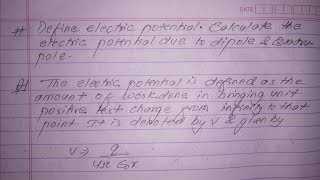 DATE
# Define electric potential. Calculate the
electric potential due to dipole & Quadru-
pole.
The electric potential is defined as the
amount of workdone in bringing unit
positive test charge from infinity to that
point. It is denoted by V & given by
V ⇒ q
4π ε₀r